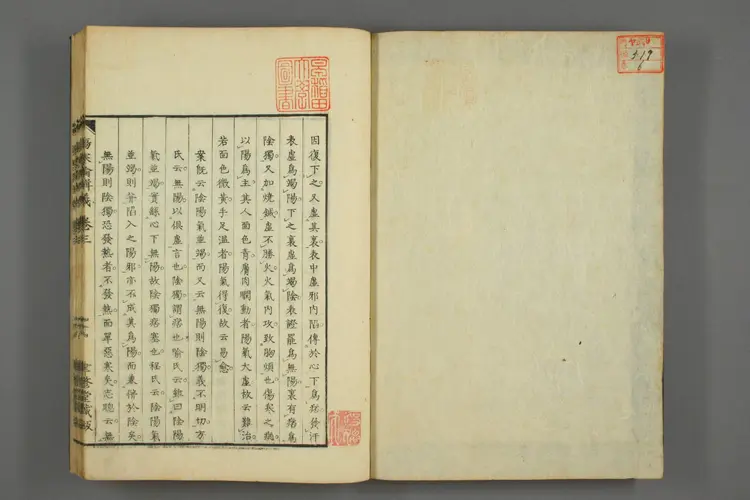 因復下之又虛其裏表中虛邪內陷傳於心下爲痞發汗
表虛爲竭陽下之裏虛爲竭陰表證罷爲無陽裏有痞爲
陰獨又加燒鍼虛不勝火火氣內攻致胸煩也傷寒之病
以陽爲主其人面色青膚肉瞤動者陽氣大虛故云難治
若面色微黃手足溫者陽氣得復故云易愈
案旣云陰陽氣並竭而又云無陽則陰獨義不明切方
氏云無陽以俱虛言也陰獨謂痞也喻氏云雖曰陰陽
氣並竭實繇心下無陽故陰獨痞塞也程氏云陰陽氣
並竭則管陷入之陽邪亦不成其爲陽而兼僭於陰矣
無陽則陰獨恐發熱者不發熱而單惡寒矣志聰云無
傷寒論輯義 卷三
聿脩堂藏版